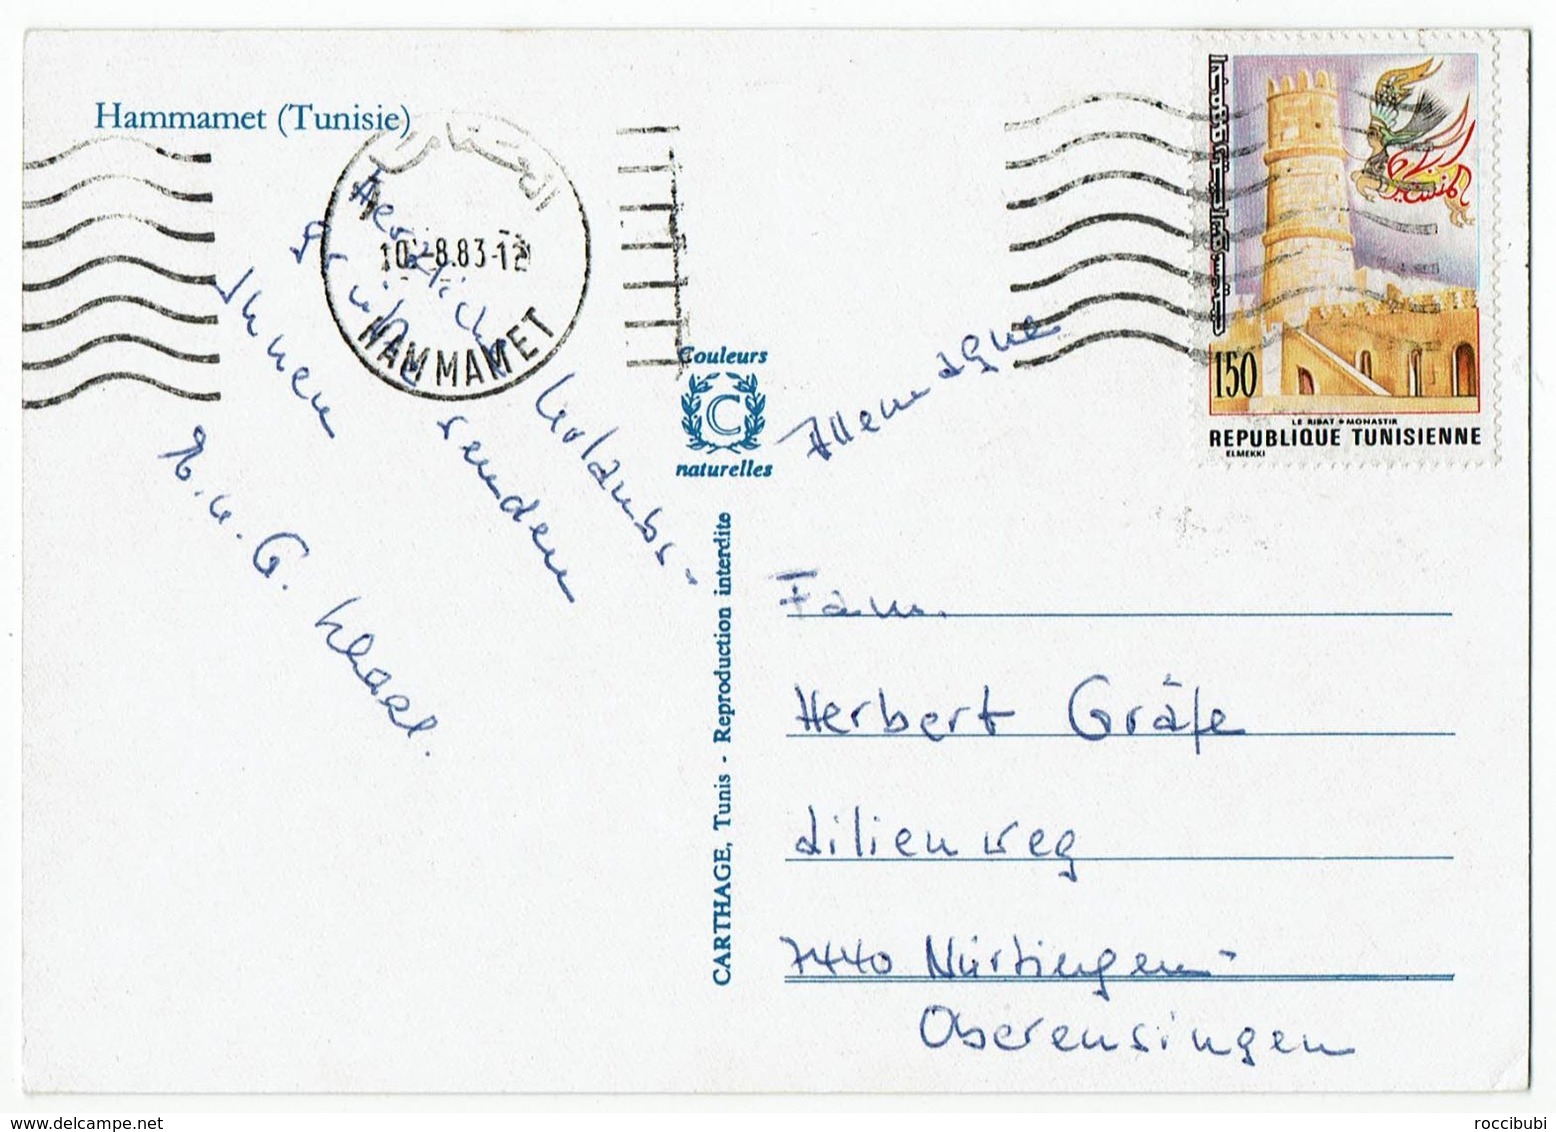 Hammamet (Tunisie)
الحمامات
10.-8.83-12
HAMMAMET
Herzliche Urlaubs-
Grüße senden
Ihnen
R. u. G.
Couleurs
C
naturelles
CARTHAGE, Tunis - Reproduction interdite
Allemagne
150
LE RIBAT * MONASTIR
REPUBLIQUE TUNISIENNE
ELMEKKI
Fam.
Herbert Gräfe
Lilienweg
7440 Nürtingen-
Oberensingen
www.delcampe.net
roccibubi